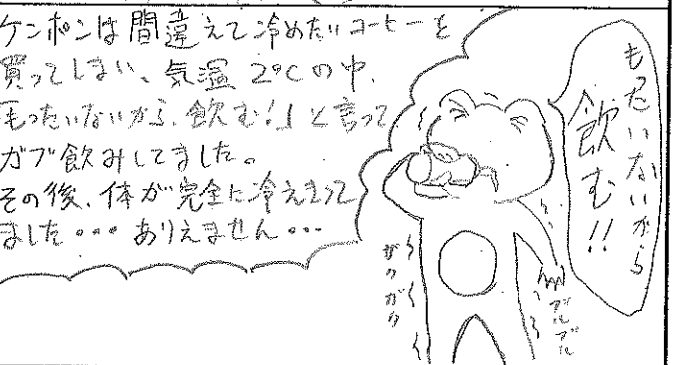 ケンポンは間違えて冷めたいコーヒーを
買ってしまい、気温 2℃の中、
「もったいないから、飲む!」と言って
ガブ飲みしてました。
その後、体が完全に冷えきって
ました・・・ありえません・・・
もったいないから
飲む!!
ブルブル